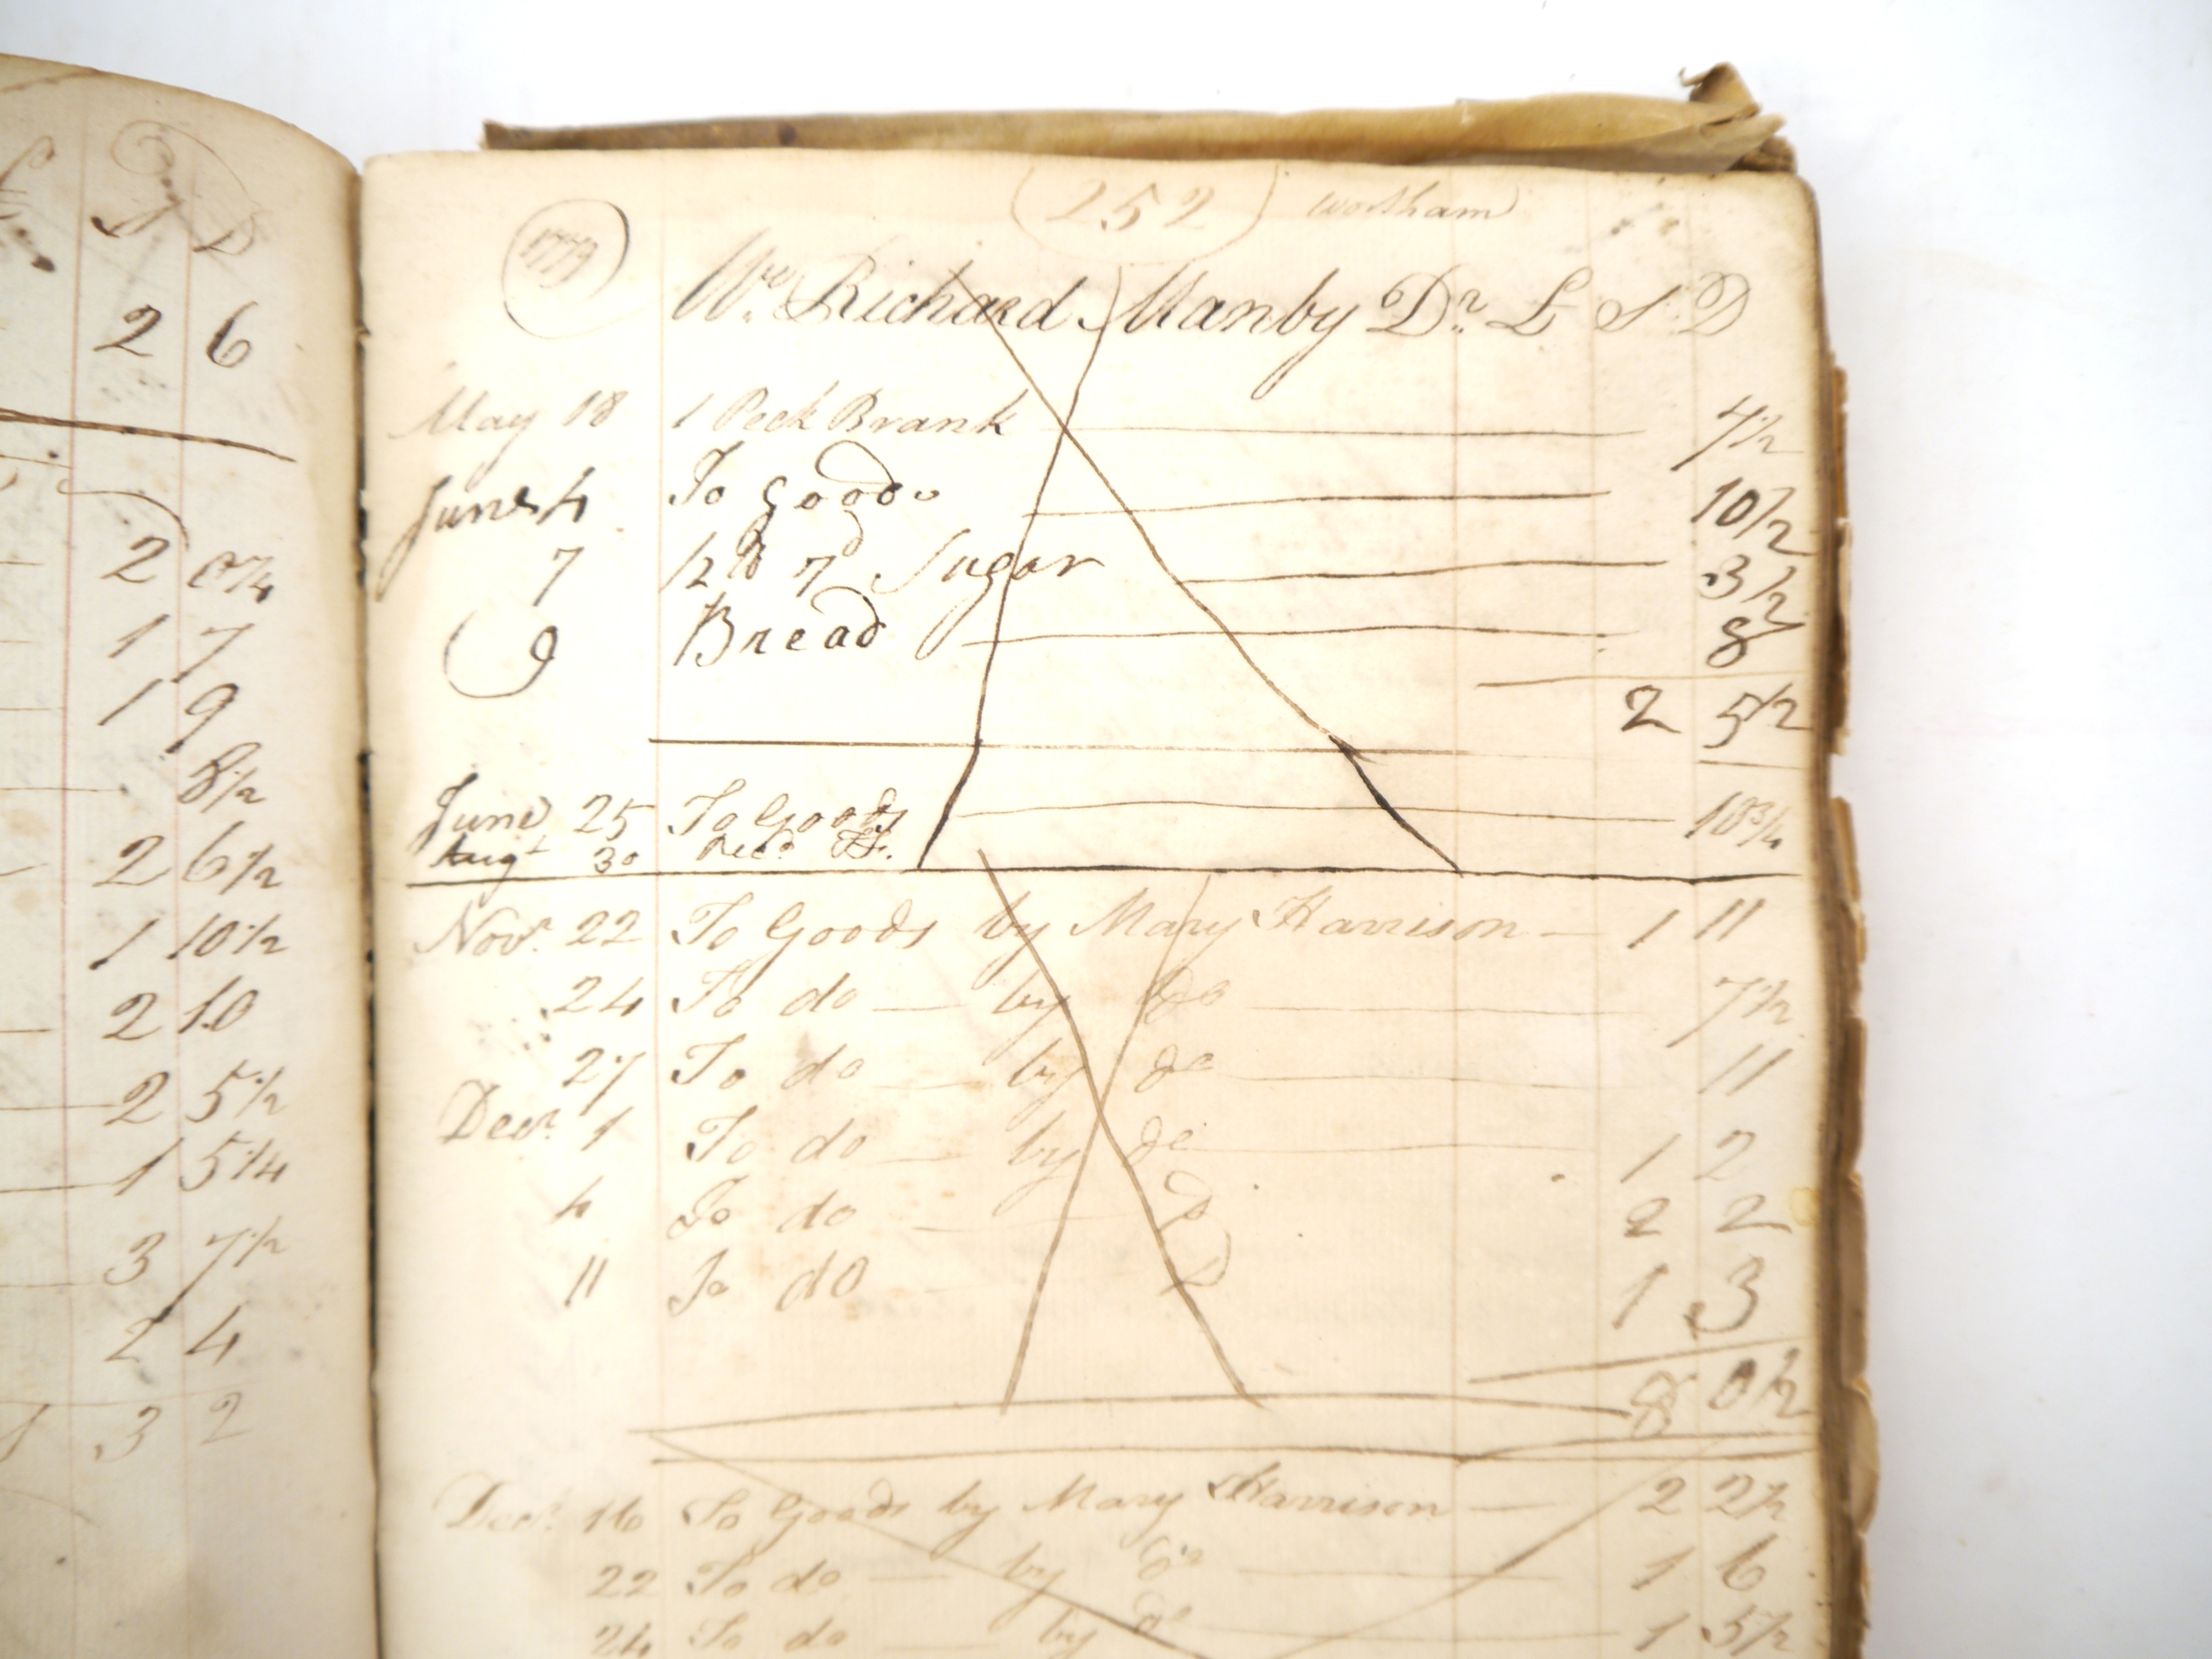 S D
2 6
2 0¼
1 7
1 9
8½
2 6½
1 10½
2 10
2 5½
1 5¼
3 7½
2 4
1 3 2
252
1779
Richard Manby Dr. L S D
May 18 1 Peck Brank 4½
June 4 To Goods 10½
7 ½ lb 7d Sugar 3½
9 Bread 8
2 5½
June 25 To Goods 10¾
Augt 30 Recd
Novr. 22 To Goods by Mary Harrison 1 11
24 To do by do 7½
27 To do by do 11
Decr. 1 To do by do 1 2
4 To do D 2 2
11 To do D 1 3
8 0½
Decr. 16 To Goods by Mary Harrison 2 2½
22 To do by do 1 6
24 To do by do 1 5½